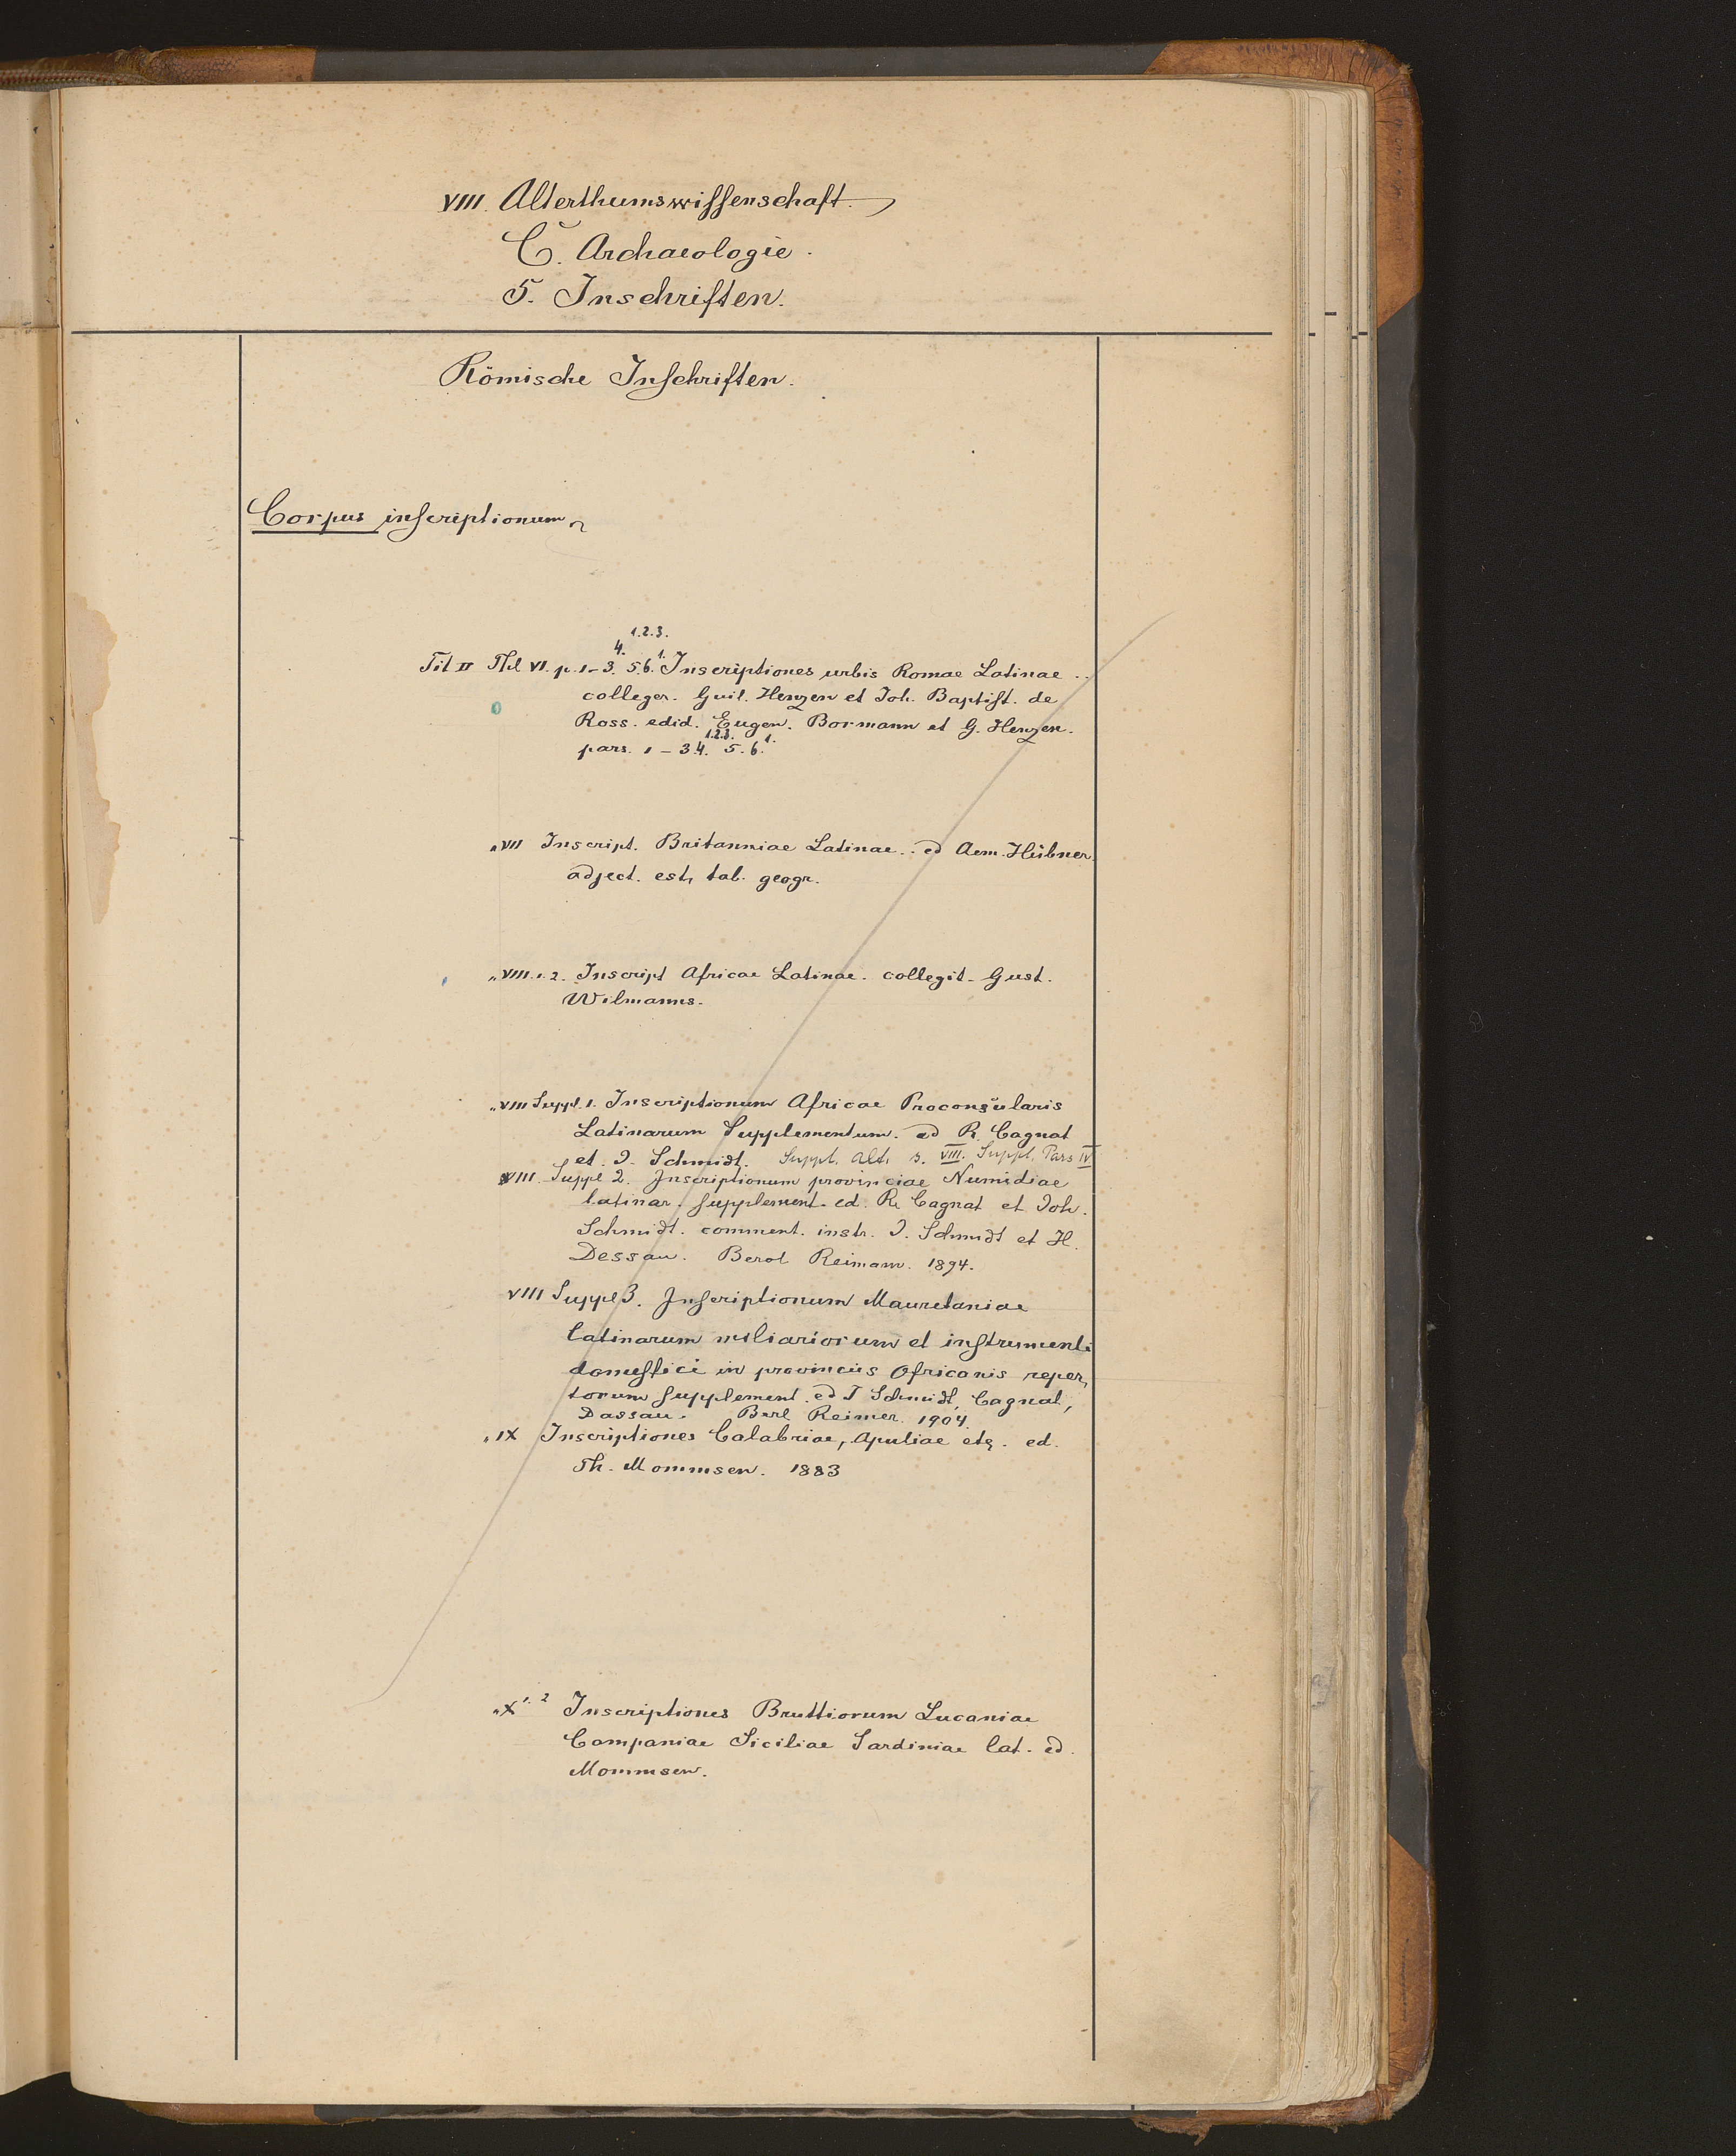 VIII. Alterthumswissenschaft.
C. Archaeologie.
5. Inschriften.
Römische Inschriften.
Corpus inscriptionum
1.2.3.
4. 1.
Tit II Thl VI. p. 1-3. 5.6. Inscriptiones urbis Romae Latinae ..
colleger. Guil. Henzen et Joh. Baptist. de
Ross. edid. Eugen. Bormann et G. Henzen.
1.2.3. 1.
pars. 1-3.4. 5.6.
„ VII Inscript. Britanniae Latinae .. ed Aem. Hübner.
adject. est, tab. geogr.
„ VIII. 1. 2. Inscript Africae Latinae. collegit. Gust.
Wilmanns.
„ VIII Suppl. 1. Inscriptionum Africae Proconsularis
Latinarum Supplementum. ed R. Cagnat
et. J. Schmidt. Suppl. Alt. s. VIII. Suppl. Pars IV
VIII. Suppl 2. Inscriptionum provinciae Numidiae
latinar. supplement. ed. R. Cagnat et Joh.
Schmidt. comment. instr. J. Schmidt et H.
Dessau. Berol Reimann. 1894.
VIII Suppl 3. Inscriptionum Mauretaniae
latinarum miliariorum et instrumenti
domestici in provinciis Africanis reper,
torum supplement. ed J Schmidt, Cagnat,
Dassau. Berl Reimer. 1904.
„ IX Inscriptiones Calabriae, Apuliae etc. ed.
Th. Mommsen. 1883
„ X 1. 2 Inscriptiones Bruttiorum Lucaniae
Campaniae Siciliae Sardiniae lat. ed.
Mommsen.